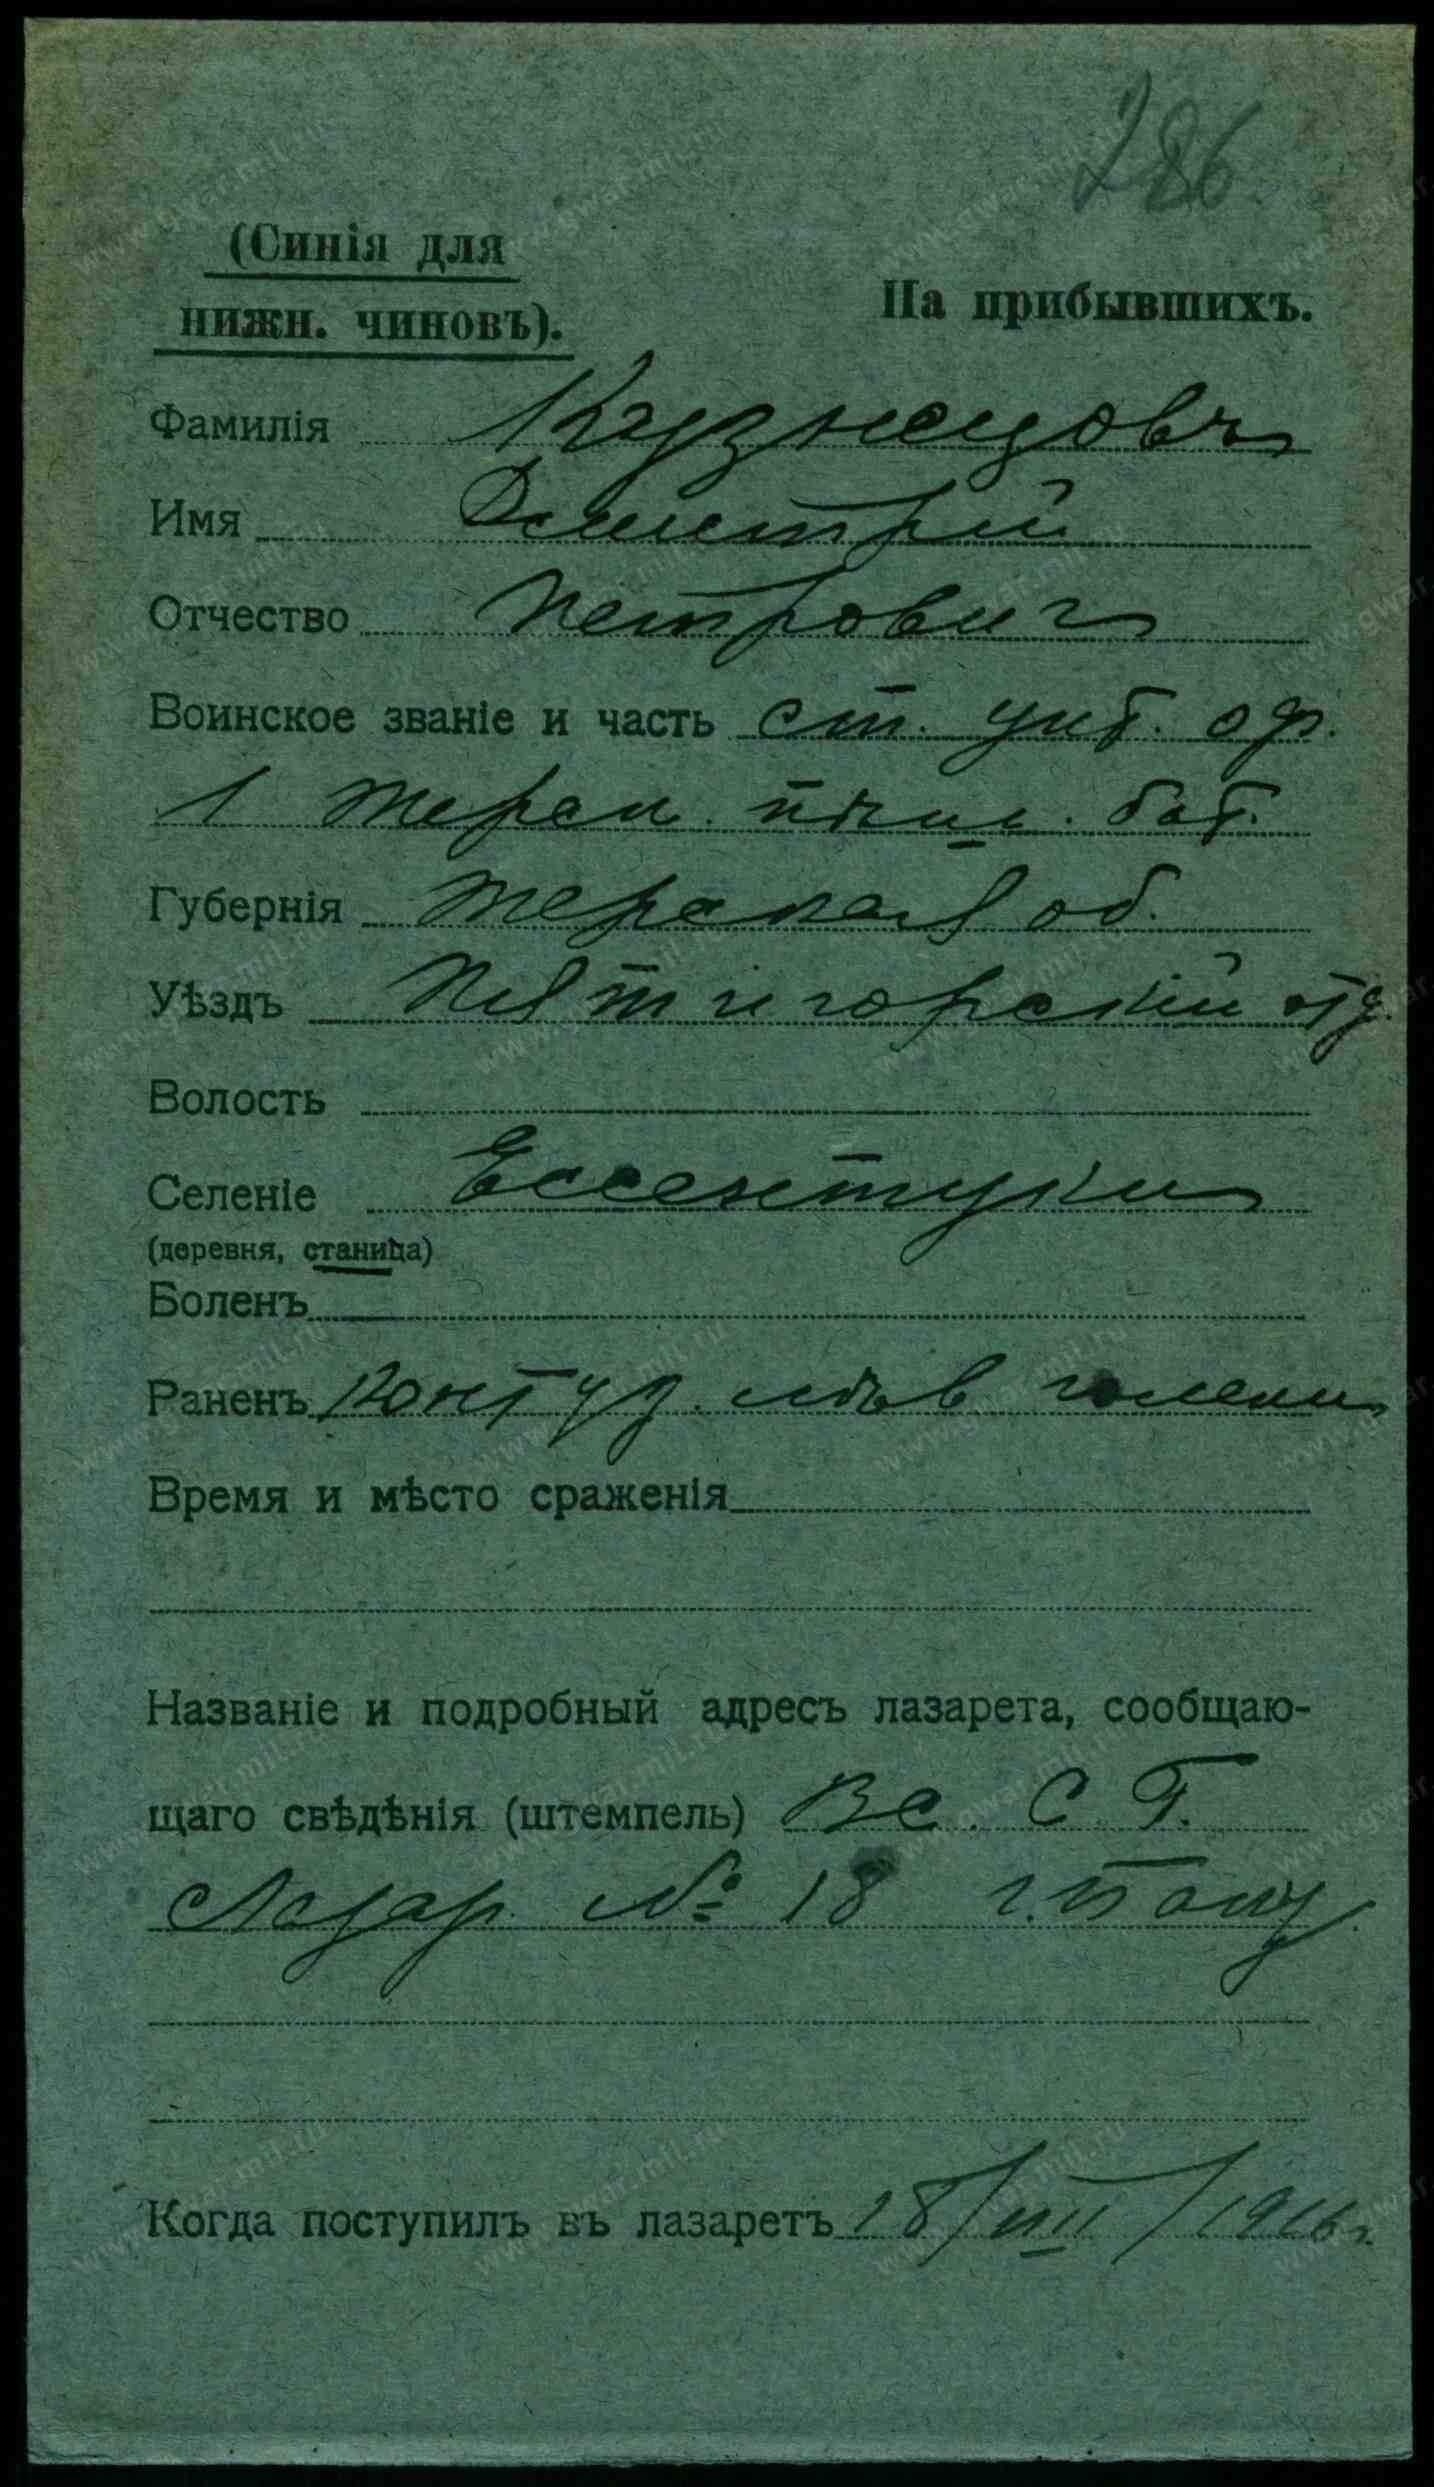 286
(Синія для
нижн. чиновъ).
На прибывшихъ.
Фамилія Кузнецовъ
Имя Дмитрій
Отчество Петрович
Воинское званіе и часть ст. унт. оф.
1 Терск. пѣш. бат.
Губернія Терская об.
Уѣздъ Пятигорскій отд.
Волость
Селеніе Ессентуки
(деревня, станица)
Боленъ
Раненъ Контуз. лѣв голени
Время и мѣсто сраженія
Названіе и подробный адресъ лазарета, сообщаю-
щаго свѣдѣнія (штемпель) Вс. С Г.
Лазар. № 18 г.
Когда поступилъ въ лазаретъ 18/VIII/1916 г.